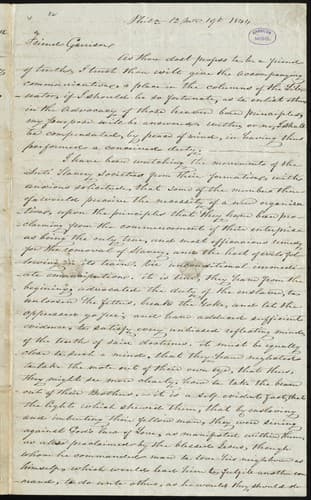 Phila 12 mo. 19th 1844
Friend Garrison
As thou dost profess to be a friend
of truth, I trust thou wilt give the accompanying
communication, a place in the columns of the Libe
rator, if I should be so fortunate, as to enlist others
in the advocacy of these heaven born principles,
my purpose will be answered, but if not, I shall
be compensated, by peace of mind, in having thus
performed a conceived duty.
I have been watching the movements of the
Anti Slavery Societies from their formation, with
anxious solicitude, that some of the number there
of would perceive the necessity of a new organiza
tion, upon the principles that they have been pro
claiming from the commencement of their enterprise
as being the only true, and most efficacious remedy
for the removal of Slavery, and the host of evils fol
lowing in its train, viz unconditional immedi
ate emancipation. it is true, they have from the
begining advocated the duty of the oppressor, to
unloosen the fetters, break the Yoke, and let the
oppressed go free; and have adduced sufficient
evidence to satisfy every unbiased reflecting mind
of the truth of said doctrines. it must be equally
clear to such a mind, that they have neglected
to take the mote out of their own eye, that thus
they might see more clearly, how to take the beam
out of their Brothers. it is a self evident fact, that
the light which shewed them, that by enslaving
and imbruting their fellow man, they were sinning
against God's Law of Love, as manifested within them,
as also proclaimed by the blessed Jesus, though
whom he commanded man to love his neighbour as
himself, which would lead him to fulfil another com
mand, to do unto others, as he would they should do